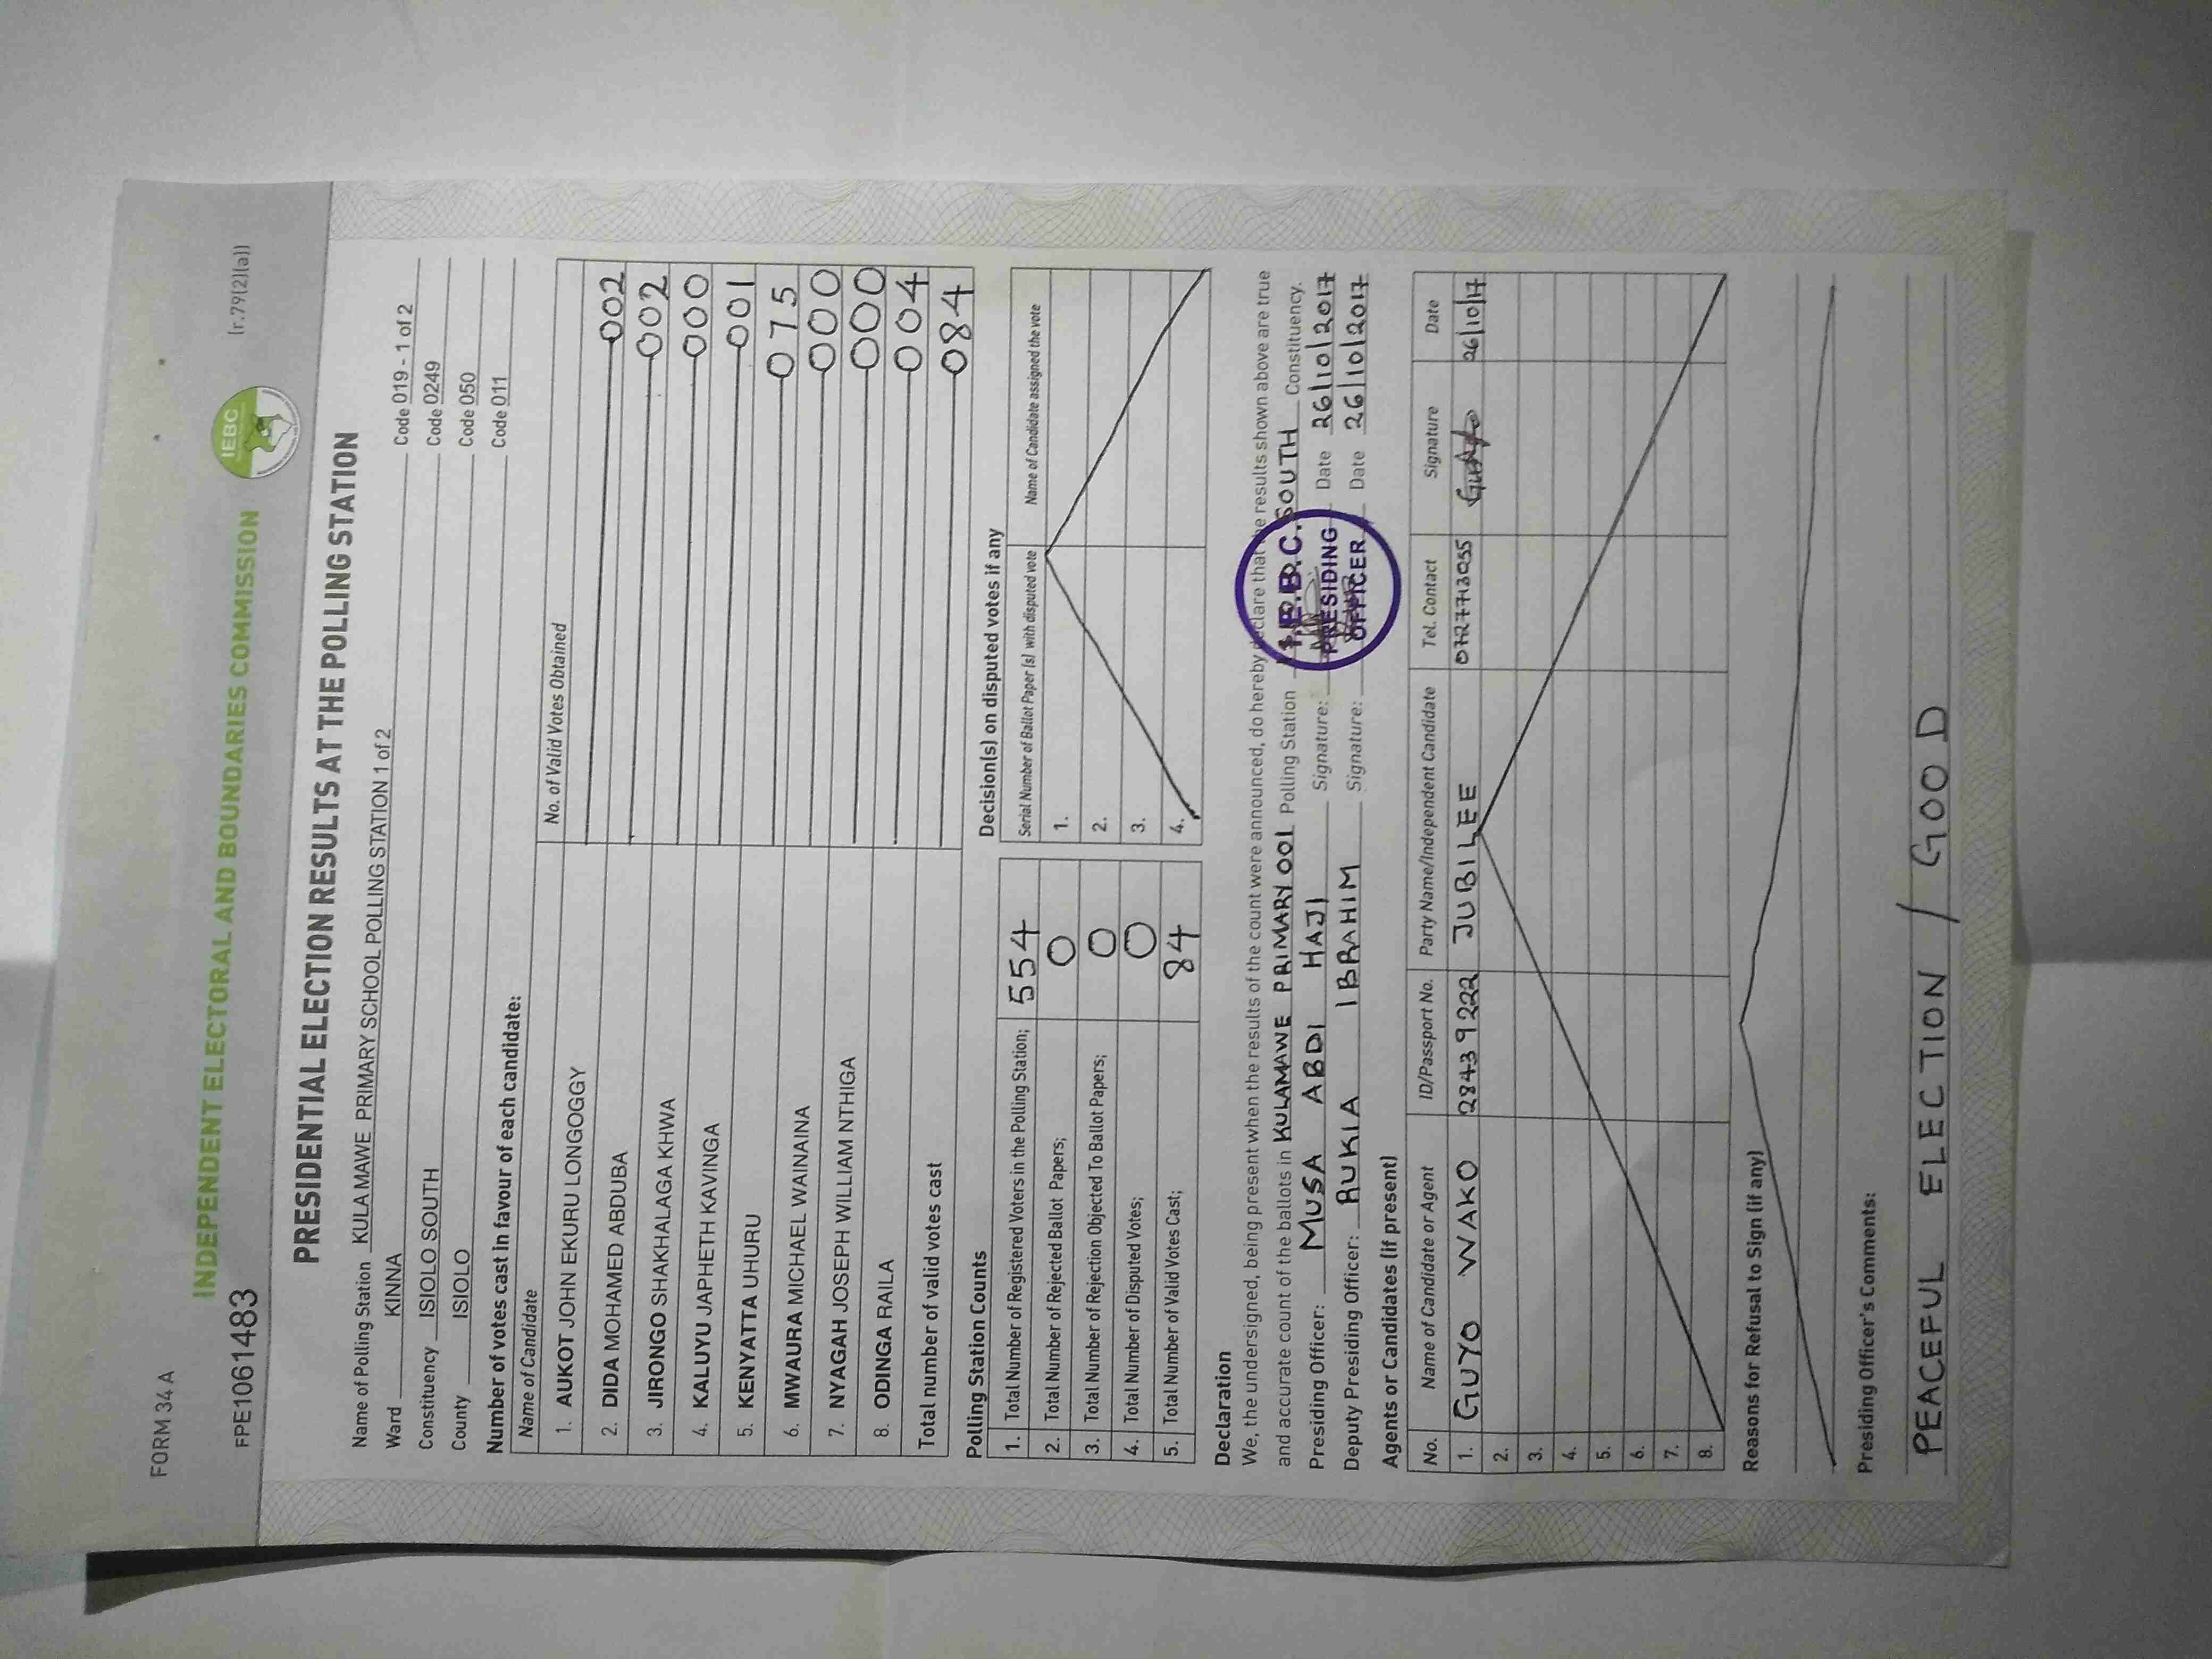 FORM 34 A
INDEPENDENT ELECTORAL AND BOUNDARIES COMMISSION
IEBC
FPE1061483
(r.79(2)(a))
PRESIDENTIAL ELECTION RESULTS AT THE POLLING STATION
Name of Polling Station KULA MAWE PRIMARY SCHOOL POLLING STATION 1 of 2 Code 019 - 1 of 2
Ward KINNA Code 0249
Constituency ISIOLO SOUTH Code 050
County ISIOLO Code 011
Number of votes cast in favour of each candidate:
Name of Candidate No. of Valid Votes Obtained
1. AUKOT JOHN EKURU LONGOGGY 002
2. DIDA MOHAMED ABDUBA 002
3. JIRONGO SHAKHALAGA KHWA 000
4. KALUYU JAPHETH KAVINGA 001
5. KENYATTA UHURU 075
6. MWAURA MICHAEL WAINAINA 000
7. NYAGAH JOSEPH WILLIAM NTHIGA 000
8. ODINGA RAILA 004
Total number of valid votes cast 084
Polling Station Counts
1. Total Number of Registered Voters in the Polling Station; 554
2. Total Number of Rejected Ballot Papers; 0
3. Total Number of Rejection Objected To Ballot Papers; 0
4. Total Number of Disputed Votes; 0
5. Total Number of Valid Votes Cast; 84
Decision(s) on disputed votes if any
Serial Number of Ballot Paper (s) with disputed vote Name of Candidate assigned the vote
1.
2.
3.
4.
Declaration
We, the undersigned, being present when the results of the count were announced, do hereby declare that the results shown above are true
and accurate count of the ballots in KULAMAWE PRIMARY 001 Polling Station ISIOLO SOUTH Constituency.
Presiding Officer: MUSA ABDI HAJI Signature: Date 26/10/2017
Deputy Presiding Officer: RUKIA IBRAHIM Signature: Date 26/10/2017
I.E.B.C.
PRESIDING
OFFICER
Agents or Candidates (if present)
No. Name of Candidate or Agent ID/Passport No. Party Name/Independent Candidate Tel. Contact Signature Date
1. GUYO WAKO 28439222 JUBILEE 0727713055 26/10/17
2.
3.
4.
5.
6.
7.
8.
Reasons for Refusal to Sign (if any)
Presiding Officer's Comments:
PEACEFUL ELECTION / GOOD